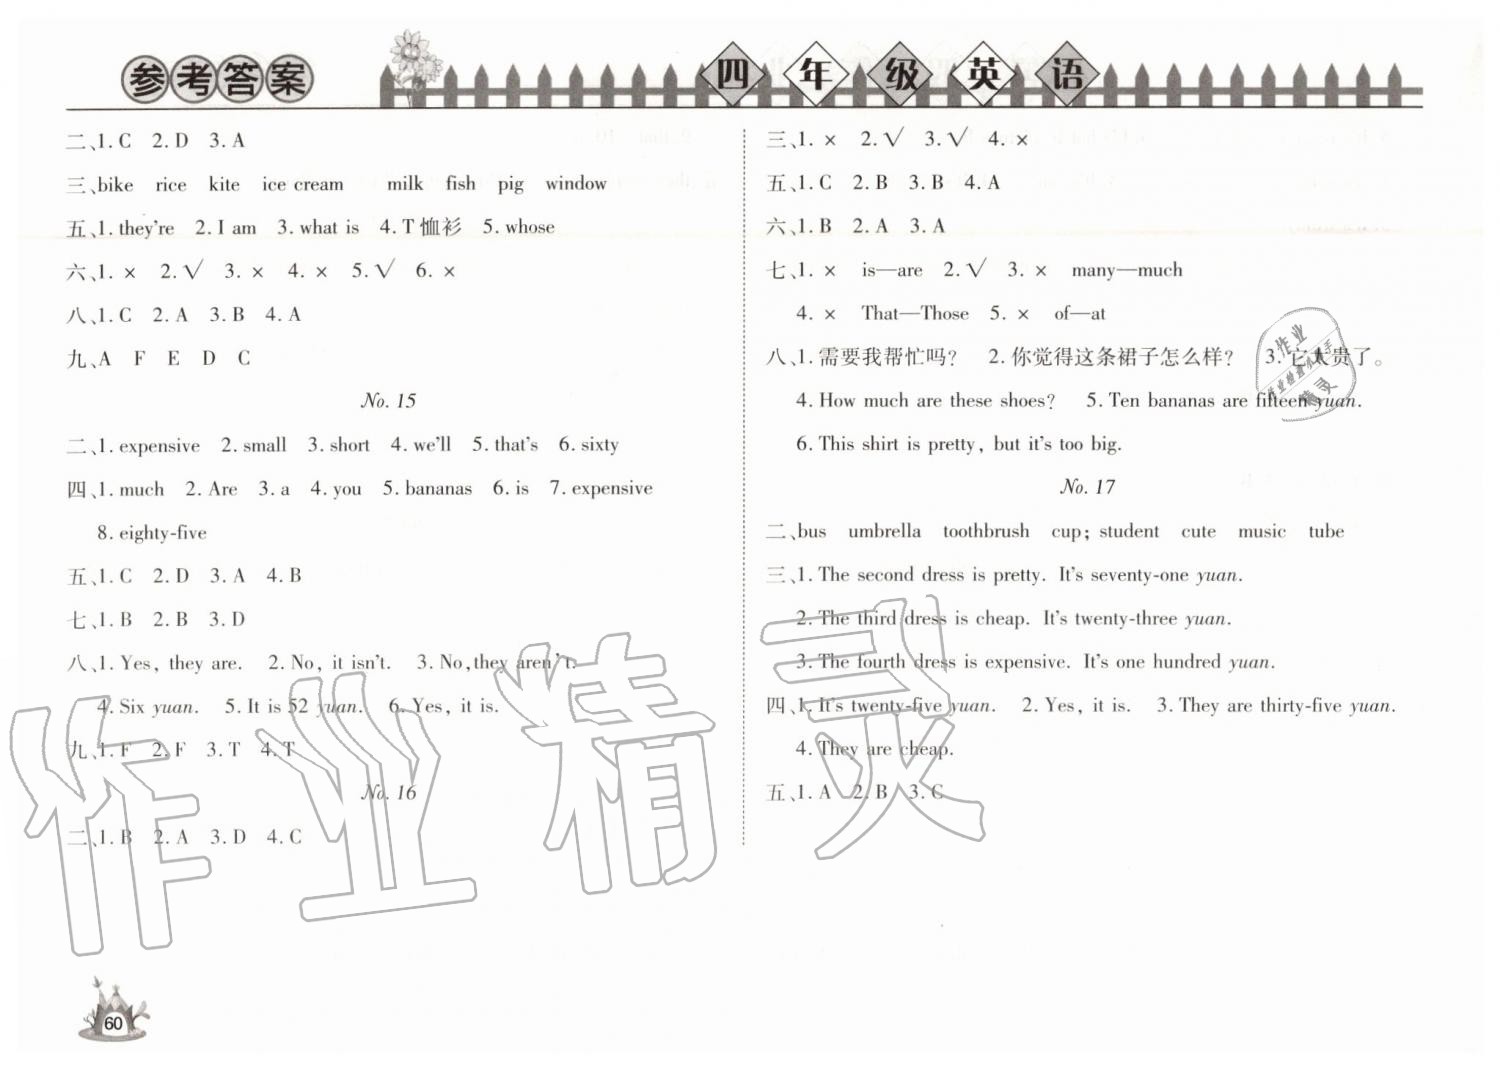 参考答案
四年级英语
二、1. C 2. D 3. A
三、bike rice kite ice cream milk fish pig window
五、1. they're 2. I am 3. what is 4. T恤衫 5. whose
六、1. × 2. √ 3. × 4. × 5. √ 6. ×
八、1. C 2. A 3. B 4. A
九、A F E D C
No. 15
二、1. expensive 2. small 3. short 4. we'll 5. that's 6. sixty
四、1. much 2. Are 3. a 4. you 5. bananas 6. is 7. expensive
8. eighty-five
五、1. C 2. D 3. A 4. B
七、1. B 2. B 3. D
八、1. Yes, they are. 2. No, it isn't. 3. No,they aren't.
4. Six yuan. 5. It is 52 yuan. 6. Yes, it is.
九、1. F 2. F 3. T 4. T
No. 16
二、1. B 2. A 3. D 4. C
三、1. × 2. √ 3. √ 4. ×
五、1. C 2. B 3. B 4. A
六、1. B 2. A 3. A
七、1. × is—are 2. √ 3. × many—much
4. × That—Those 5. × of—at
八、1. 需要我帮忙吗? 2. 你觉得这条裙子怎么样? 3. 它太贵了。
4. How much are these shoes? 5. Ten bananas are fifteen yuan.
6. This shirt is pretty, but it's too big.
No. 17
二、bus umbrella toothbrush cup; student cute music tube
三、1. The second dress is pretty. It's seventy-one yuan.
2. The third dress is cheap. It's twenty-three yuan.
3. The fourth dress is expensive. It's one hundred yuan.
四、1. It's twenty-five yuan. 2. Yes, it is. 3. They are thirty-five yuan.
4. They are cheap.
五、1. A 2. B 3. C
作业精灵
作业
作业检查小助手
精灵
60